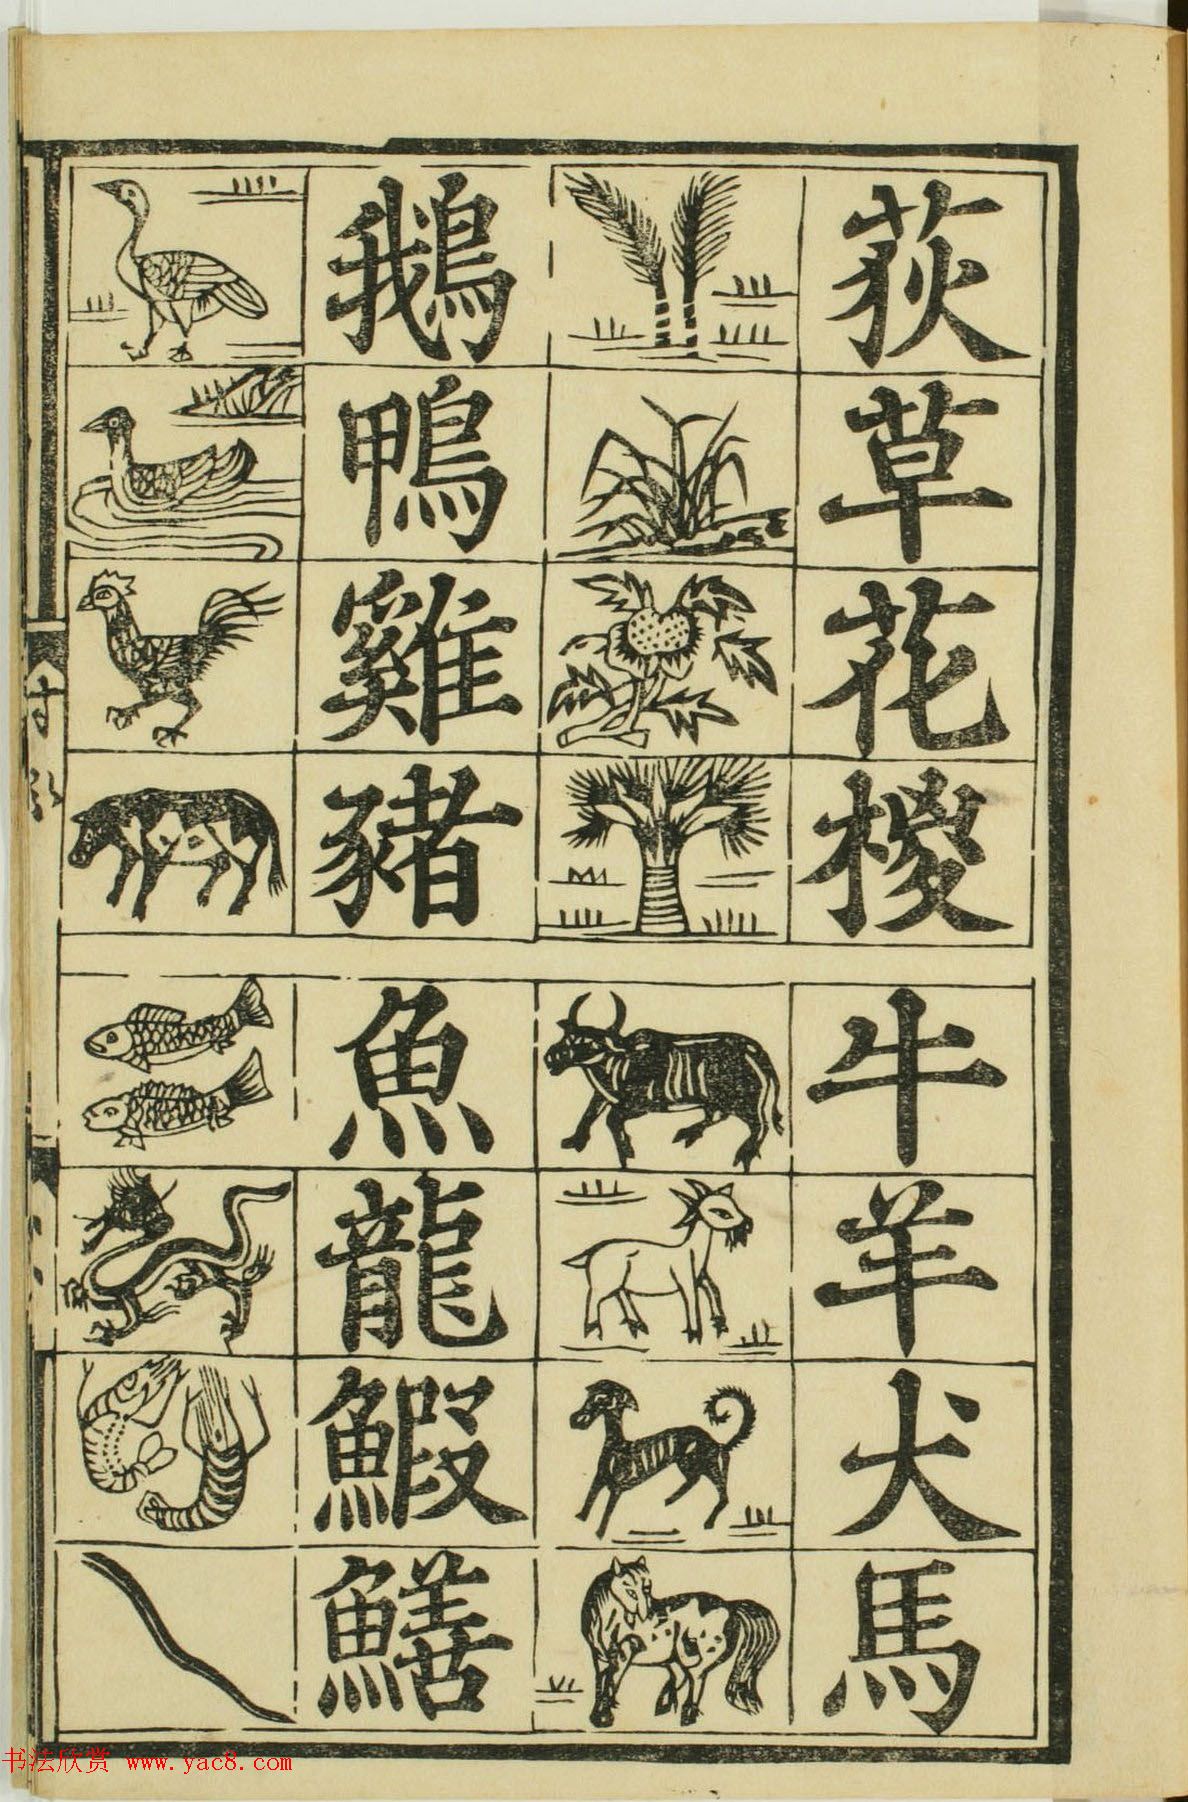 荻草花椶
鵝鴨雞豬
牛羊犬馬
魚龍鰕鱔
书法欣赏 www.yac8.com